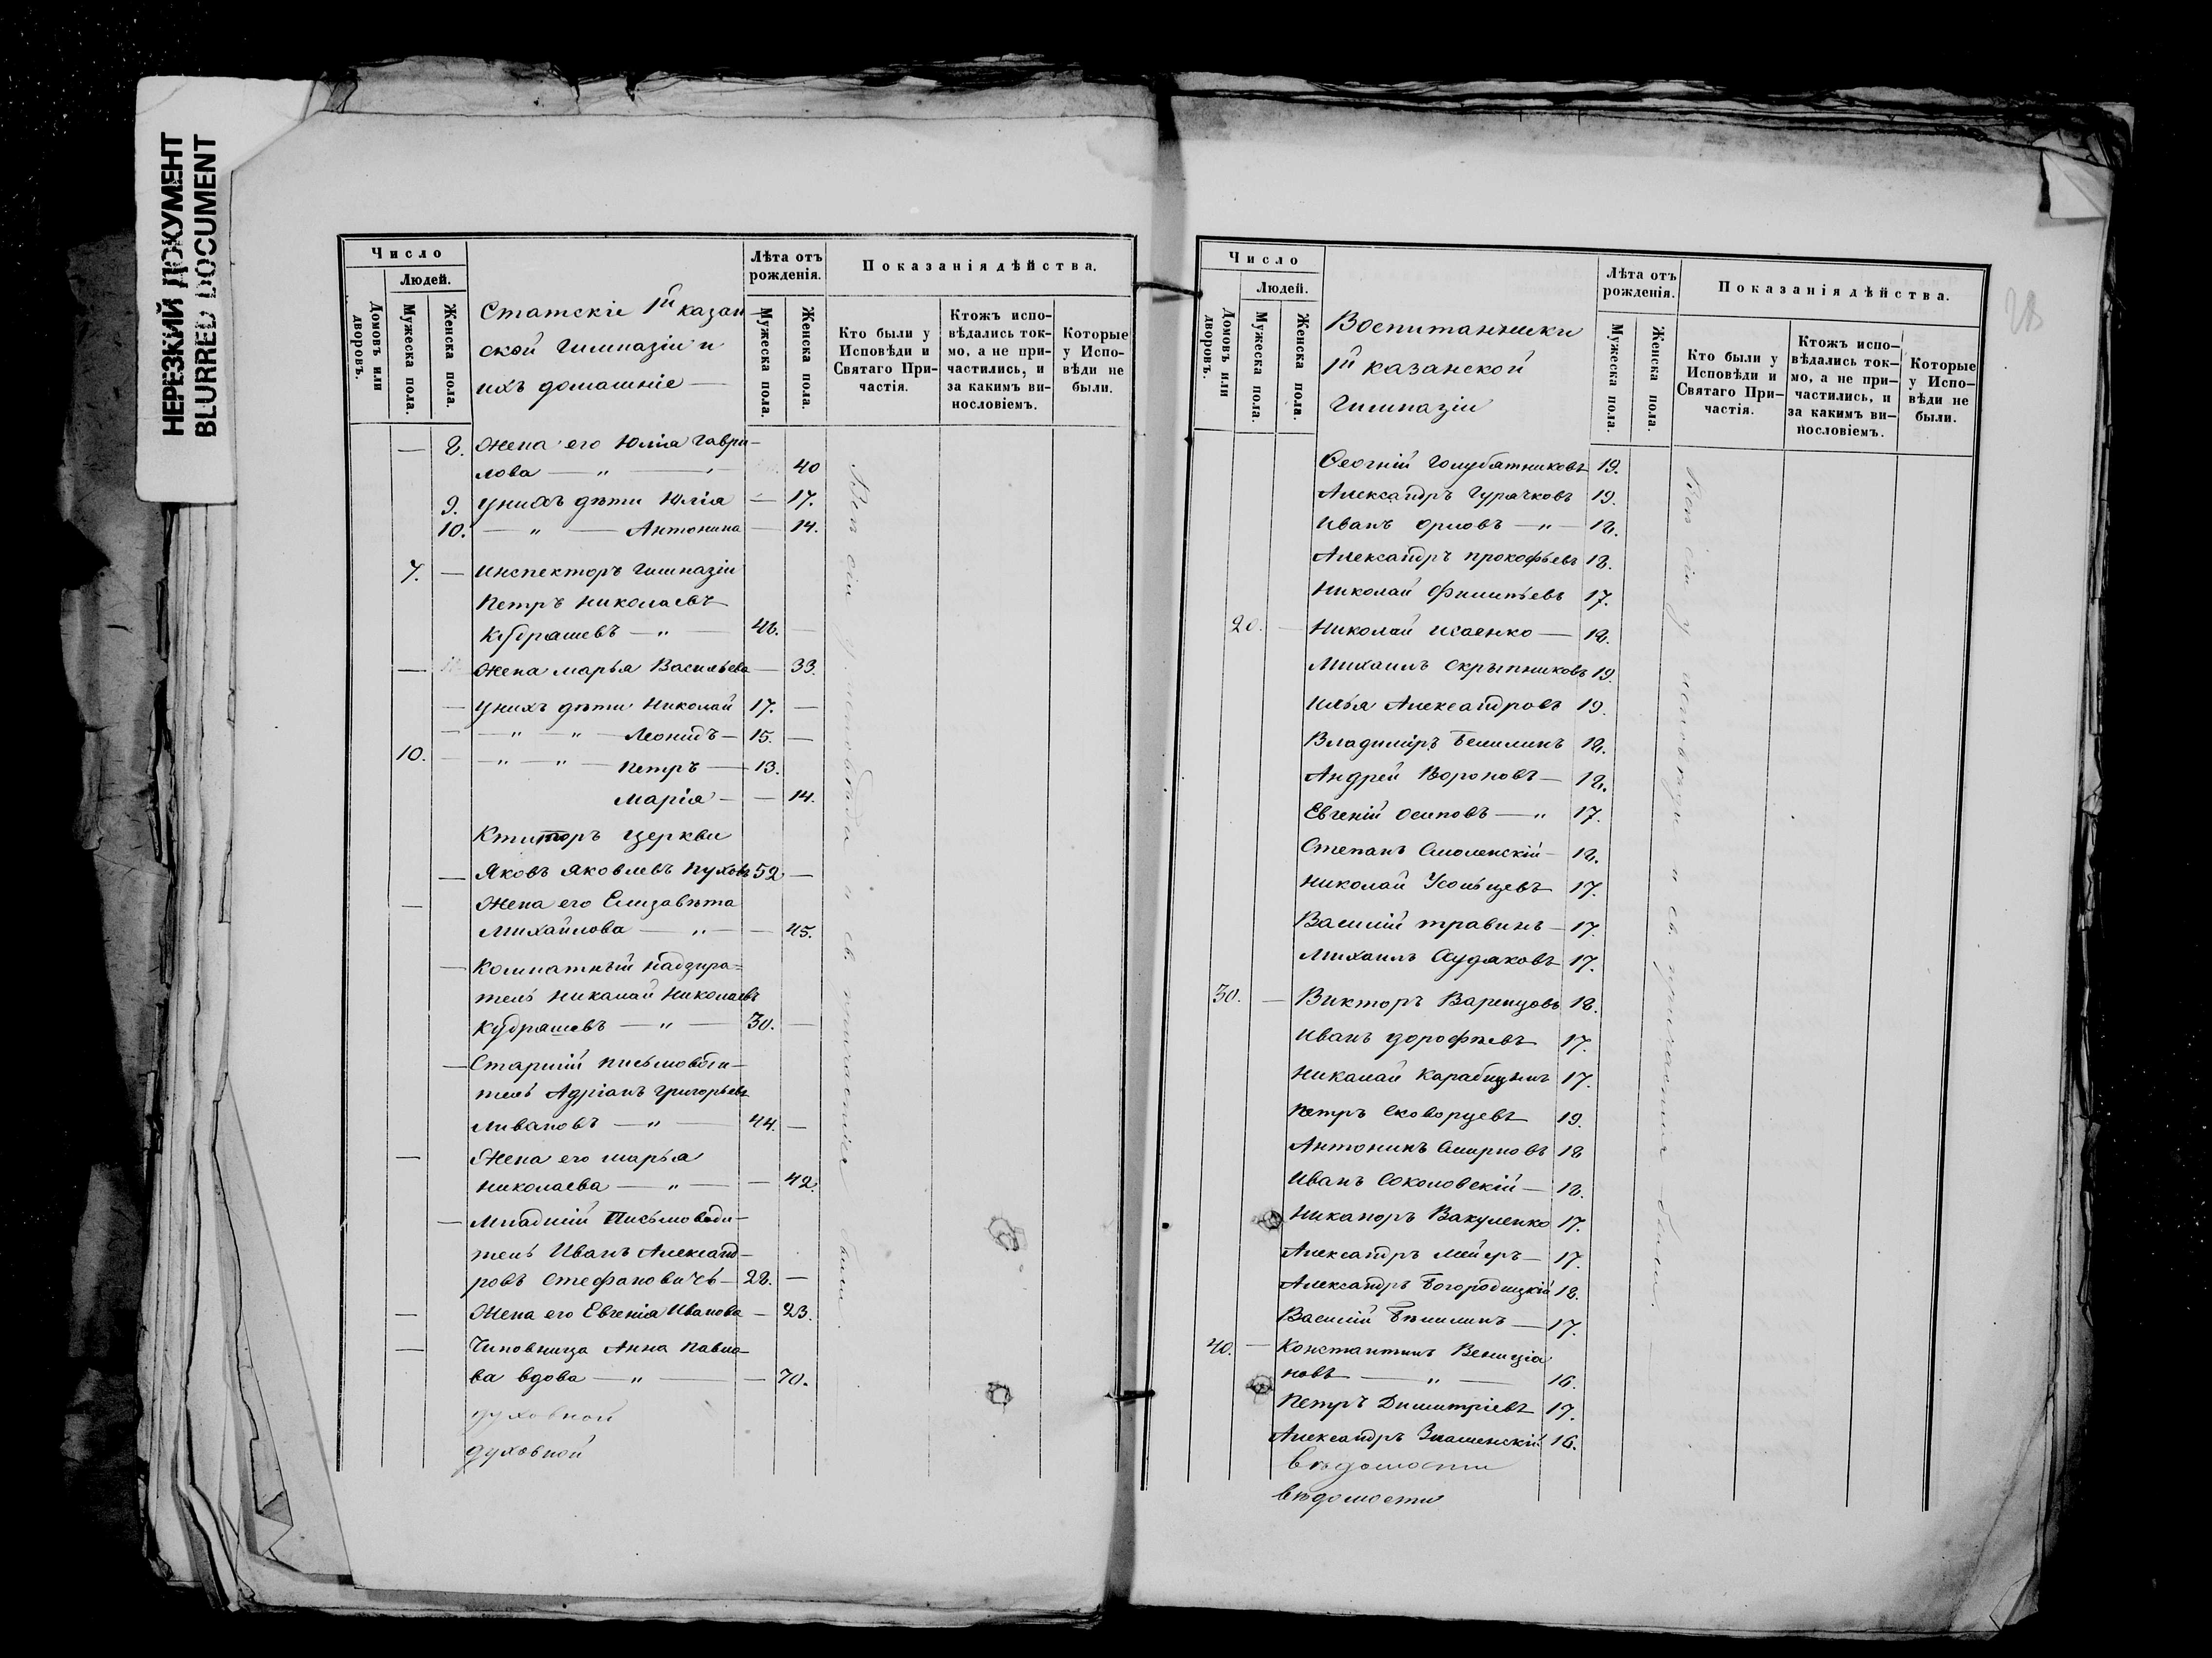 НЕРЕЗКИЙ ДОКУМЕНТ
BLURRED DOCUMENT
Число
Людей.
Домовъ или дворовъ.
Мужеска пола.
Женска пола.
Статскіе 1й казан
ской Гимназіи и
ихъ домашніе —
Лѣта отъ
рожденія.
Мужеска пола.
Женска пола.
Показанія дѣйства.
Кто были у
Исповѣди и
Святаго При-
частія.
Ктожъ испо-
вѣдались ток-
мо, а не при-
частились, и
за какимъ ви-
нословіемъ.
Которые
у Испо-
вѣди не
были.
— 8. Жена его Юлія Гаври-
лова — „ — 40
9. У нихъ дѣти Юлія — 17.
10. — „ — Антонина — 14.
7. — Инспекторъ Гимназіи
Петръ Николаевъ
Кудрашевъ — „ — 48. —
— Жена Марья Васильева — 33.
— У нихъ дѣти Николай 17. —
— „ — „ — Леонидъ — 15. —
10. — „ — „ — Петръ — 13.
Марія — — 14.
Ктиторъ церкви
— Яковъ Яковлевъ Пуховъ 52 —
— Жена его Елизавѣта
Михайлова — „ — — 45.
— Комнатный надзира=
тель Николай Николаевъ
Кудрашевъ — „ — 30. —
— Старшій письмоводи-
тель Адріанъ Григорьевъ
Ливановъ — „ — 44. —
— Жена его Марья
Николаева — „ — — 42.
— Младшій Письмоводи-
тель Иванъ Александ-
ровъ Стефановичъ — 28. —
— Жена его Евгенія Иванова — 23.
— Чиновница Анна Павло-
ва вдова — „ — — 70.
духовной
духовной
Всѣ сіи у исповѣди и св. причастія были.
28
Число
Людей.
Домовъ или дворовъ.
Мужеска пола
Женска пола.
Воспитанники
1й казанской
Гимназіи
Лѣта отъ
рожденія.
Мужеска пола.
Женска пола.
Показанія дѣйства.
Кто были у
Исповѣди и
Святаго При-
частія.
Ктожъ испо-
вѣдались ток-
мо, а не при-
частились, и
за какимъ ви-
нословіемъ.
Которые
у Испо-
вѣди не
были.
Ѳеогній Голубятниковъ 19.
Александръ Гурачковъ 19.
Иванъ Орловъ — „ — 18.
Александръ Прокофьевъ 18.
Николай Филипьевъ 17.
20. — Николай Исаенко — 18.
Михаилъ Скрыпниковъ 19.
Илья Александровъ 19.
Владиміръ Бемилинъ 18.
Андрей Вороновъ — 18.
Евгеній Осиповъ — „ 17.
Степанъ Смоленскій — 18.
Николай Усольцевъ 17.
Василій Травинъ — 17.
Михаилъ Худяковъ 17.
30. — Викторъ Варенцовъ 18.
Иванъ Дорофѣевъ 17.
Николай Карабицынъ 17.
Петръ Скворцевъ 19.
Антонинъ Смирновъ 18
Иванъ Соколовскій — 18.
Никаноръ Вакуленко 17.
Александръ Мейеръ — 17.
Александръ Богородицкій 18.
Василій Бѣлилинъ — 17.
40. — Константинъ Венеціа
новъ — „ — 16.
Петръ Димитріевъ 17.
Александръ Знаменскій 16.
вѣдомости
вѣдомости
Всѣ сіи у исповѣди и св. причастія были.